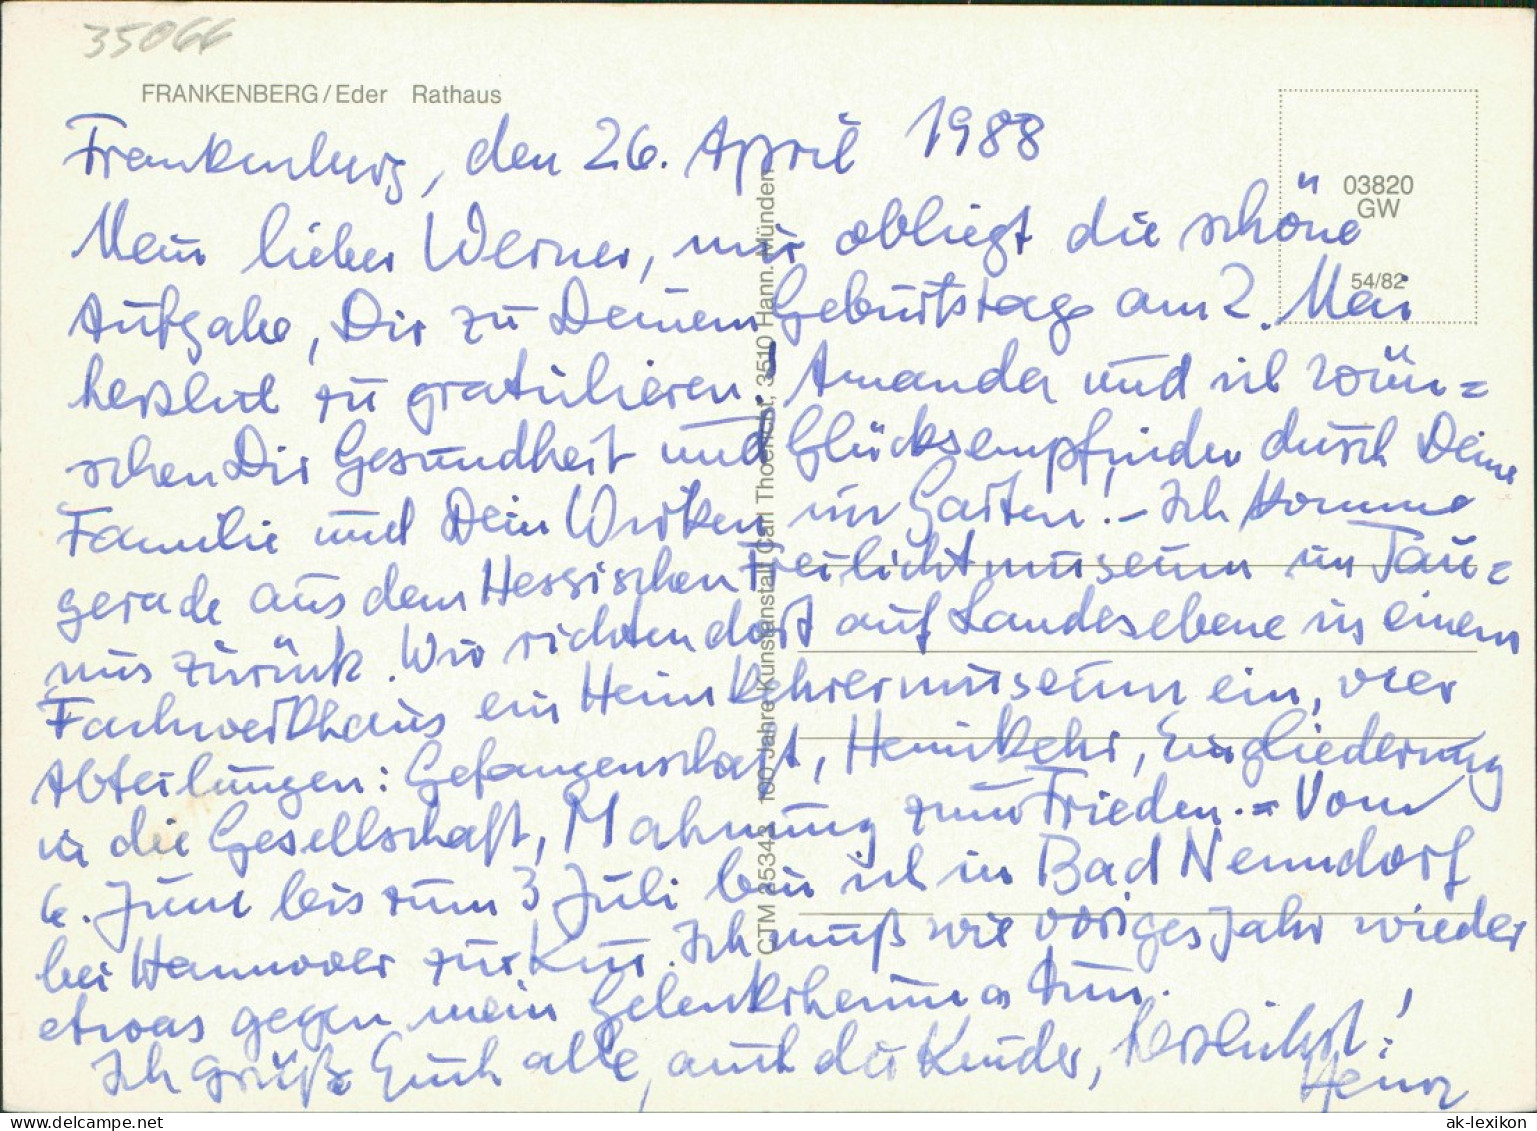 35066
FRANKENBERG/Eder Rathaus
03820
GW
54/82
Frankenberg, den 26. April 1988
Mein lieber Werner, mir obliegt die schöne
Aufgabe, Dir zu Deinem Geburtstage am 2. Mai
herzlich zu gratulieren! Amanda und ich wün=
schen Dir Gesundheit und Glücksempfinden durch Deine
Familie und Dein Wirken im Garten! – Ich komme
gerade aus dem Hessischen Freilichtmuseum im Tau=
nus zurück. Wir richten dort auf Landesebene in einem
Fachwerkhaus ein Heimkehrermuseum ein, vier
Abteilungen: Gefangenschaft, Heimkehr, Eingliederung
in die Gesellschaft, Mahnung zum Frieden. – Vom
6. Juni bis zum 3 Juli bin ich in Bad Nenndorf
bei Hannover zur Kur. Ich muß wie voriges Jahr wieder
etwas gegen mein Gelenkrheuma tun.
Ich grüße Euch alle, auch die Kinder, herzlichst!
Heinz
CTM 25343 100 Jahre Kunstanstalt Carl Thoericht, 3510 Hann. Münden
akpool.net
ak-lexikon